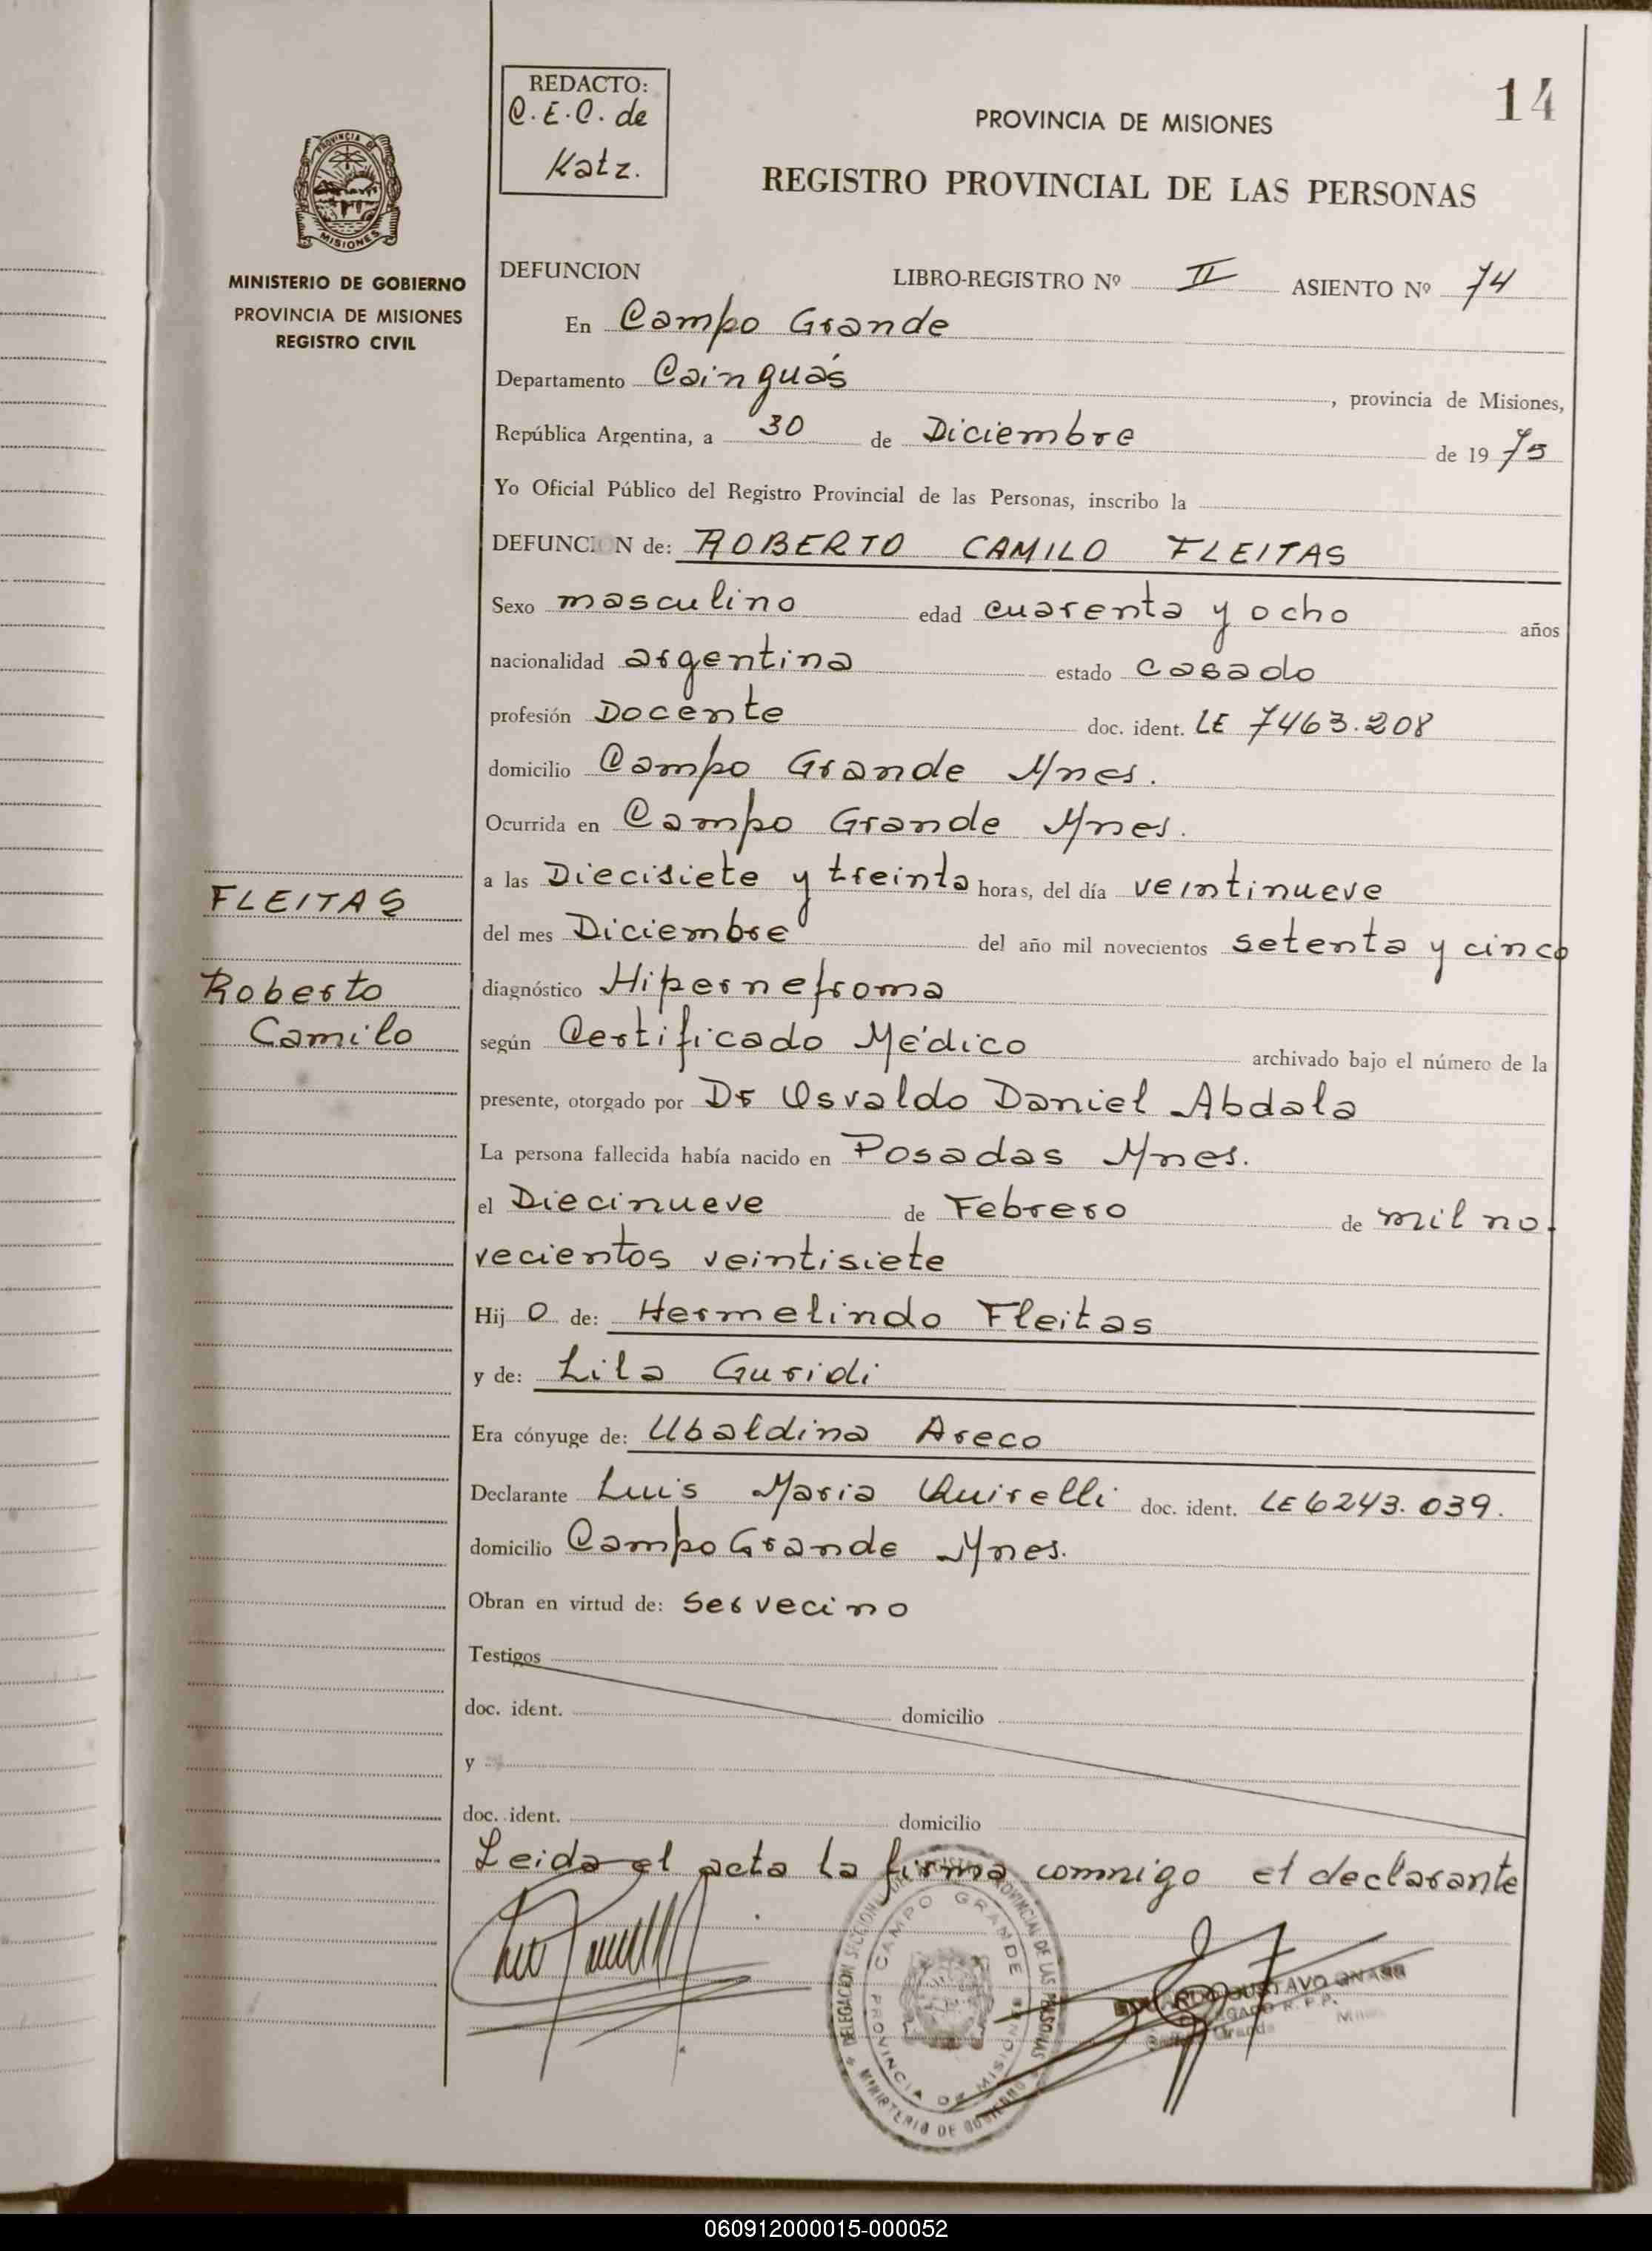 14
REDACTO:
C.E.C. de
Katz.
PROVINCIA DE MISIONES
REGISTRO PROVINCIAL DE LAS PERSONAS
PROVINCIA DE
MISIONES
MINISTERIO DE GOBIERNO
PROVINCIA DE MISIONES
REGISTRO CIVIL
DEFUNCION LIBRO-REGISTRO Nº II ASIENTO Nº 74
En Campo Grande
Departamento Cainguás, provincia de Misiones,
República Argentina, a 30 de Diciembre de 1975
Yo Oficial Público del Registro Provincial de las Personas, inscribo la
DEFUNCION de: ROBERTO CAMILO FLEITAS
Sexo masculino edad cuarenta y ocho años
nacionalidad argentina estado casado
profesión Docente doc. ident. LE 7463.208
domicilio Campo Grande Mnes.
Ocurrida en Campo Grande Mnes.
a las Diecisiete y treinta horas, del día veintinueve
del mes Diciembre del año mil novecientos setenta y cinco
diagnóstico Hipernefroma
según Certificado Médico archivado bajo el número de la
presente, otorgado por Dr Osvaldo Daniel Abdala
La persona fallecida había nacido en Posadas Mnes.
el Diecinueve de Febrero de mil no.
vecientos veintisiete
Hijo de: Hermelindo Fleitas
y de: Lila Guridi
Era cónyuge de: Ubaldina Areco
Declarante Luis Maria Quirelli doc. ident. LE 6243.039.
domicilio Campo Grande Mnes.
Obran en virtud de: Ser vecino
Testigos
doc. ident. domicilio
y
doc. ident. domicilio
Leida el acta la firma conmigo el declarante
FLEITAS
Roberto
Camilo
DELEGACION SECCIONAL DEL REGISTRO PROVINCIAL DE LAS PERSONAS
CAMPO GRANDE
PROVINCIA DE MISIONES
MINISTERIO DE GOBIERNO
GUSTAVO
R. P. P.
Grande
060912000015-000052